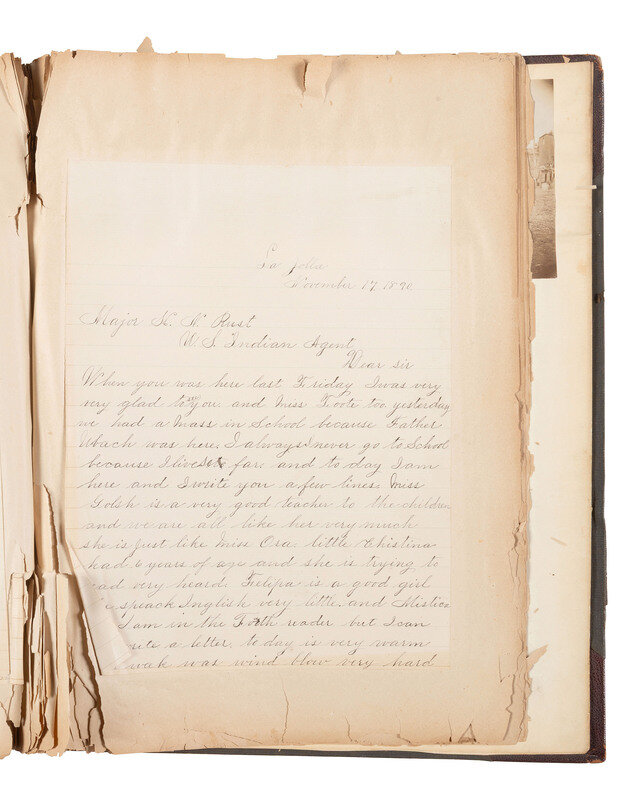 La Jolla
November 17, 1890.
Major H. N. Rust
U. S. Indian Agent
Dear sir
When you was here last Friday I was very
very glad to see you. and Miss Foote too yesterday
we had a Mass in School because Father
Ubach was here. I always never go to School
because I live far. and to day I am
here and I write you a few lines. Miss
Golsh is a very good teacher to the children
and we are all like her very much
she is just like Miss Ora. little Christina
had 6 years of age and she is trying to
ead very heard. Felipa is a good girl
speack Inglish very little. and
I am in the Foth reader but I can
rite a letter. to day is very warm
weak was wind blow very hard